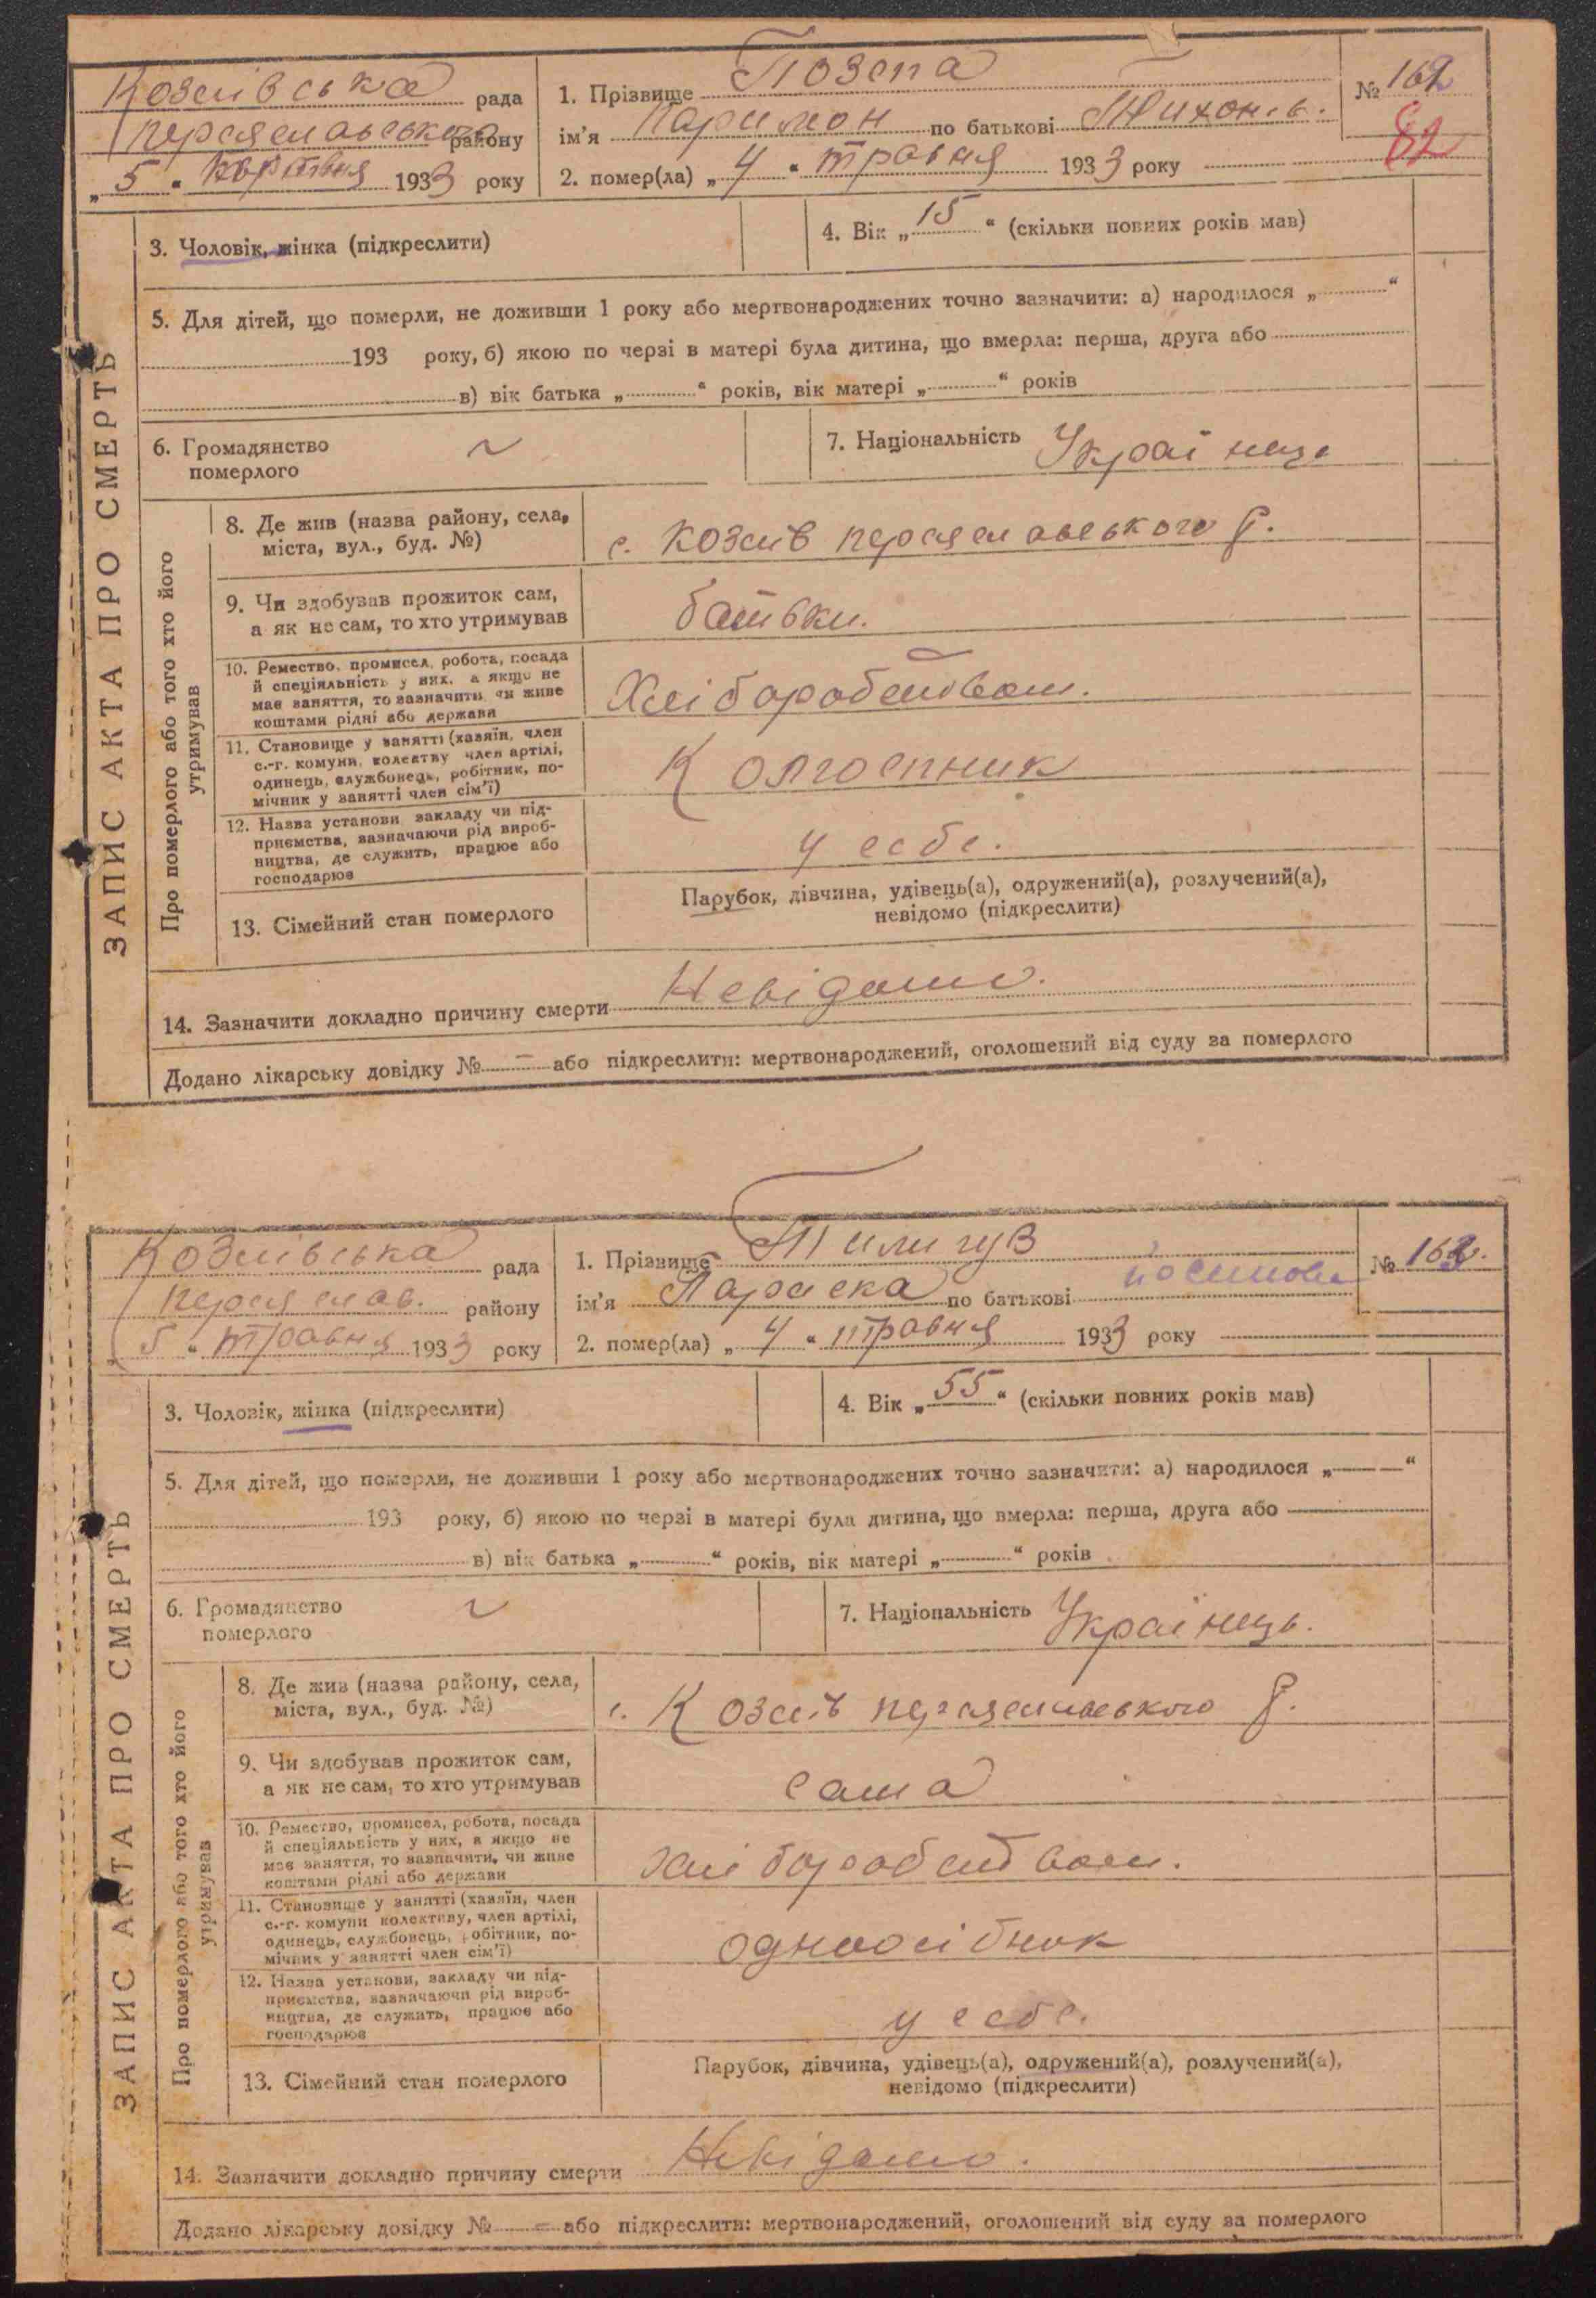 Козлівська рада
Переяславського району
„ 5 “ 1933 року
1. Прізвище Позепа
ім’я Паримон по батькові Тихонів.
2. помер(ла) „ 4 “ травня 1933 року
№ 162
82
ЗАПИС АКТА ПРО СМЕРТЬ
3. Чоловік, жінка (підкреслити)
4. Вік „ 15 “ (скільки повних років мав)
5. Для дітей, що померли, не доживши 1 року або мертвонароджених точно зазначити: а) народилося „ “
193 року, б) якою по черзі в матері була дитина, що вмерла: перша, друга або
в) вік батька „ “ років, вік матері „ “ років
6. Громадянство
померлого
7. Національність Українець
Про померлого або того хто його
утримував
8. Де жив (назва району, села,
міста, вул., буд. №)
с. Козлів переяславського р.
9. Чи здобував прожиток сам,
а як не сам, то хто утримував
батьки.
10. Ремество, промисел, робота, посада
й спеціяльність у них, а якщо не
має заняття, то зазначити, чи живе
коштами рідні або держави
Хліборобством.
11. Становище у занятті (хазяїн, член
с.-г. комуни, колективу член артілі,
одинець, службовець, робітник, по-
мічник у занятті член сім’ї)
Колгоспник
12. Назва установи, закладу чи під-
приємства, зазначаючи рід вироб-
ництва, де служить, працює або
господарює
у себе.
13. Сімейний стан померлого
Парубок, дівчина, удівець(а), одружений(а), розлучений(а),
невідомо (підкреслити)
14. Зазначити докладно причину смерти Невідомо.
Додано лікарську довідку № — або підкреслити: мертвонароджений, оголошений від суду за померлого
Козлівська рада
Переяслав. району
5 “ травня 1933 року
1. Прізвище Тилигув
ім’я Параска по батькові
2. помер(ла) „ 4 “ травня 1933 року
№ 163.
ЗАПИС АКТА ПРО СМЕРТЬ
3. Чоловік, жінка (підкреслити)
4. Вік „ 55 “ (скільки повних років мав)
5. Для дітей, що померли, не доживши 1 року або мертвонароджених точно зазначити: а) народилося „ “
193 року, б) якою по черзі в матері була дитина, що вмерла: перша, друга або
в) вік батька „ “ років, вік матері „ “ років
6. Громадянство
померлого
7. Національність Українець.
Про померлого або того хто його
утримував
8. Де жив (назва району, села,
міста, вул., буд. №)
с. Козлів переяславського р.
9. Чи здобував прожиток сам,
а як не сам, то хто утримував
сама
10. Ремество, промисел, робота, посада
й спеціяльність у них, а якщо не
має заняття, то зазначити, чи живе
коштами рідні або держави
хліборобством.
11. Становище у занятті (хазяїн, член
с.-г. комуни колективу, член артілі,
одинець, службовець, робітник, по-
мічник у занятті член сім’ї)
одноосібник
12. Назва установи, закладу чи під-
приємства, зазначаючи рід вироб-
ництва, де служить, працює або
господарює
у себе.
13. Сімейний стан померлого
Парубок, дівчина, удівець(а), одружений(а), розлучений(а),
невідомо (підкреслити)
14. Зазначити докладно причину смерти Невідомо.
Додано лікарську довідку № — або підкреслити: мертвонароджений, оголошений від суду за померлого